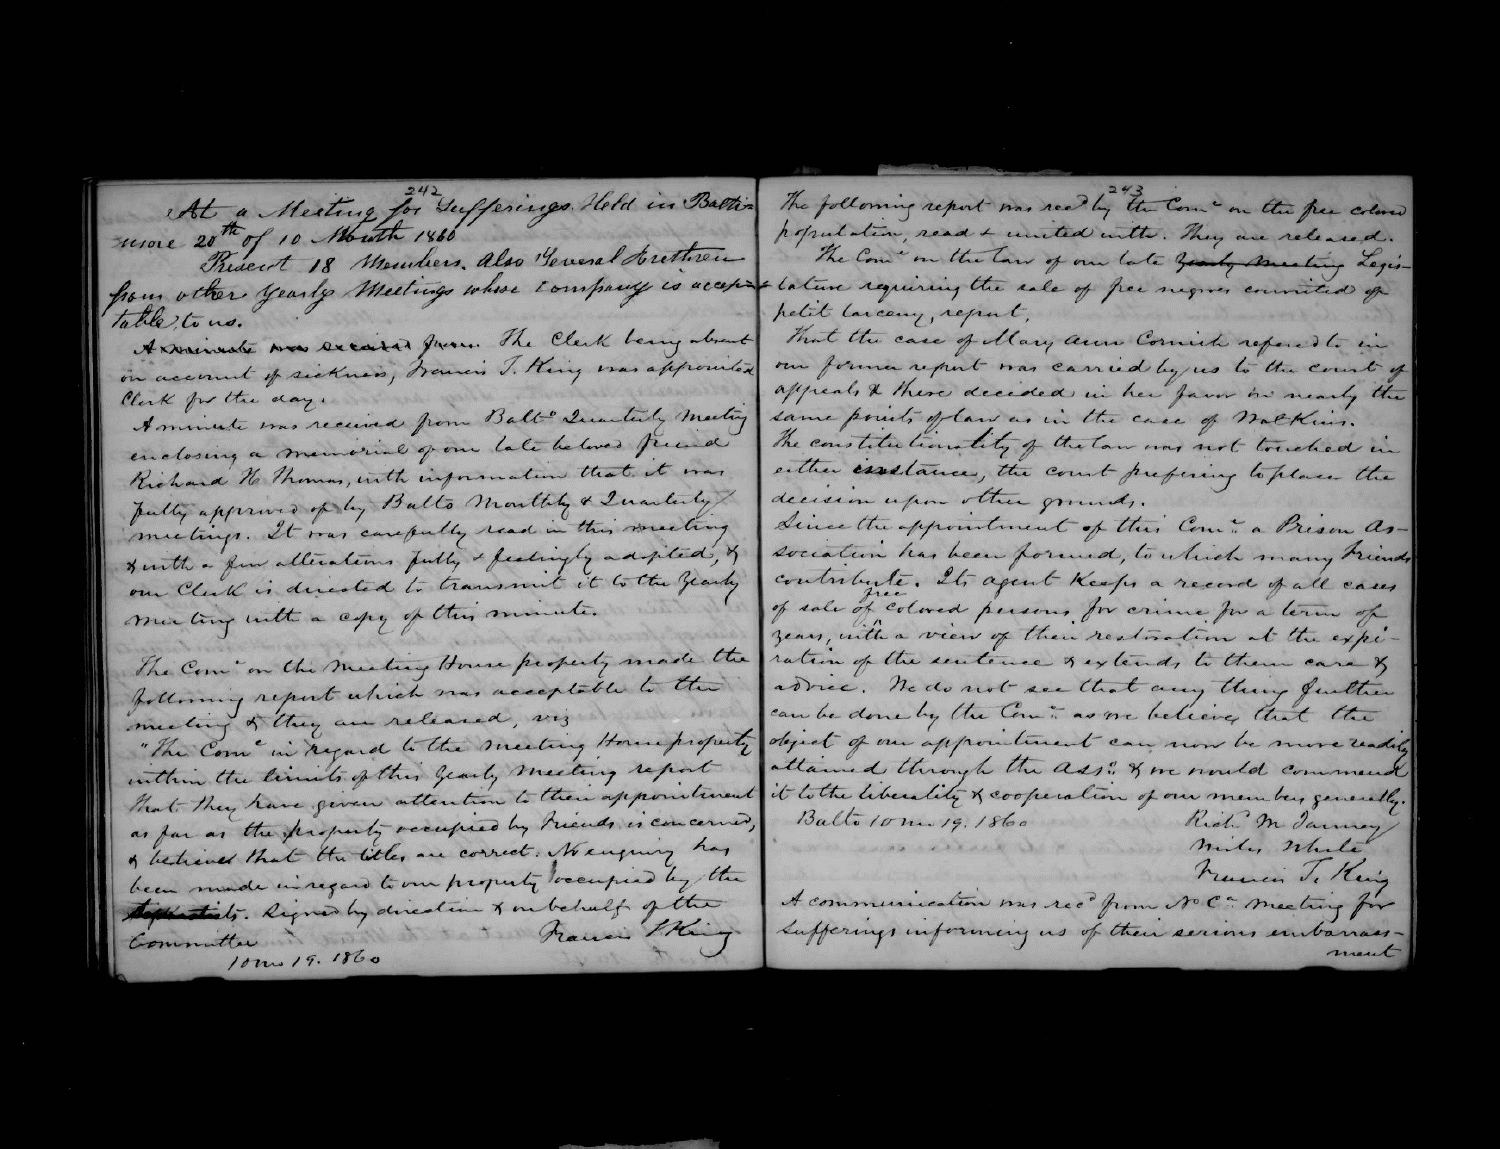 242
At a Meeting for Sufferings Held in Balti=
more 20th of 10 Month 1860
Present 18 Members. Also Several Brethren
from other Yearly Meetings whose company is accep=
table to us.
A minute was received from. The Clerk being absent
on account of sickness, Francis T. King was appointed
Clerk for the day.
A minute was received from Balto Quarterly Meeting
enclosing a memorial of our late beloved friend
Richard H Thomas, with information that it was
fully approved of by Balto Monthly & Quarterly
meetings. It was carefully read in this meeting
& with a few alterations fully & feelingly adopted, &
our Clerk is directed to transmit it to the Yearly
Meeting with a copy of this minute.
The Come on the Meeting House property made the
following report which was acceptable to the
meeting & they are released, viz
"The Come in regard to the Meeting House property
within the limits of this Yearly Meeting report
That they have given attention to their appointment
as far as the property occupied by Friends is concerned,
& believe that the titles are correct. No enquiry has
been made in regard to our property occupied by the
Separatists. Signed by direction & on behalf of the
Committee Francis T King
10 mo 19. 1860
243
The following report was recd by the Come on the free colored
population, read & united with. They are released.
The Come on the law of our late Yearly Meeting Legis-
lature requiring the sale of free negroes convicted of
petit larceny, report,
That the case of Mary Ann Cornish refered to in
our former report was carried by us to the court of
appeals & there decided in her favor on nearly the
same points of law as in the case of Watkins.
The constitutionality of the law was not touched in
either instance, the court prefering to place the
decision upon other grounds.
Since the appointment of this Come a Prison As-
sociation has been formed, to which many Friends
contribute. Its agent keeps a record of all cases
of sale of free colored persons for crime for a term of
years, with a view of their restoration at the expi-
ration of the sentence & extends to them care &
advice. We do not see that any thing further
can be done by the Come as we believe that the
object of our appointment can now be more readily
attained through the Assn & we would commend
it to the liberality & cooperation of our members generally.
Balto 10 mo 19. 1860 Richd M Janney
Miles White
Francis T. King
A communication was recd from No Ca Meeting for
Sufferings informing us of their serious embarrass-
ment